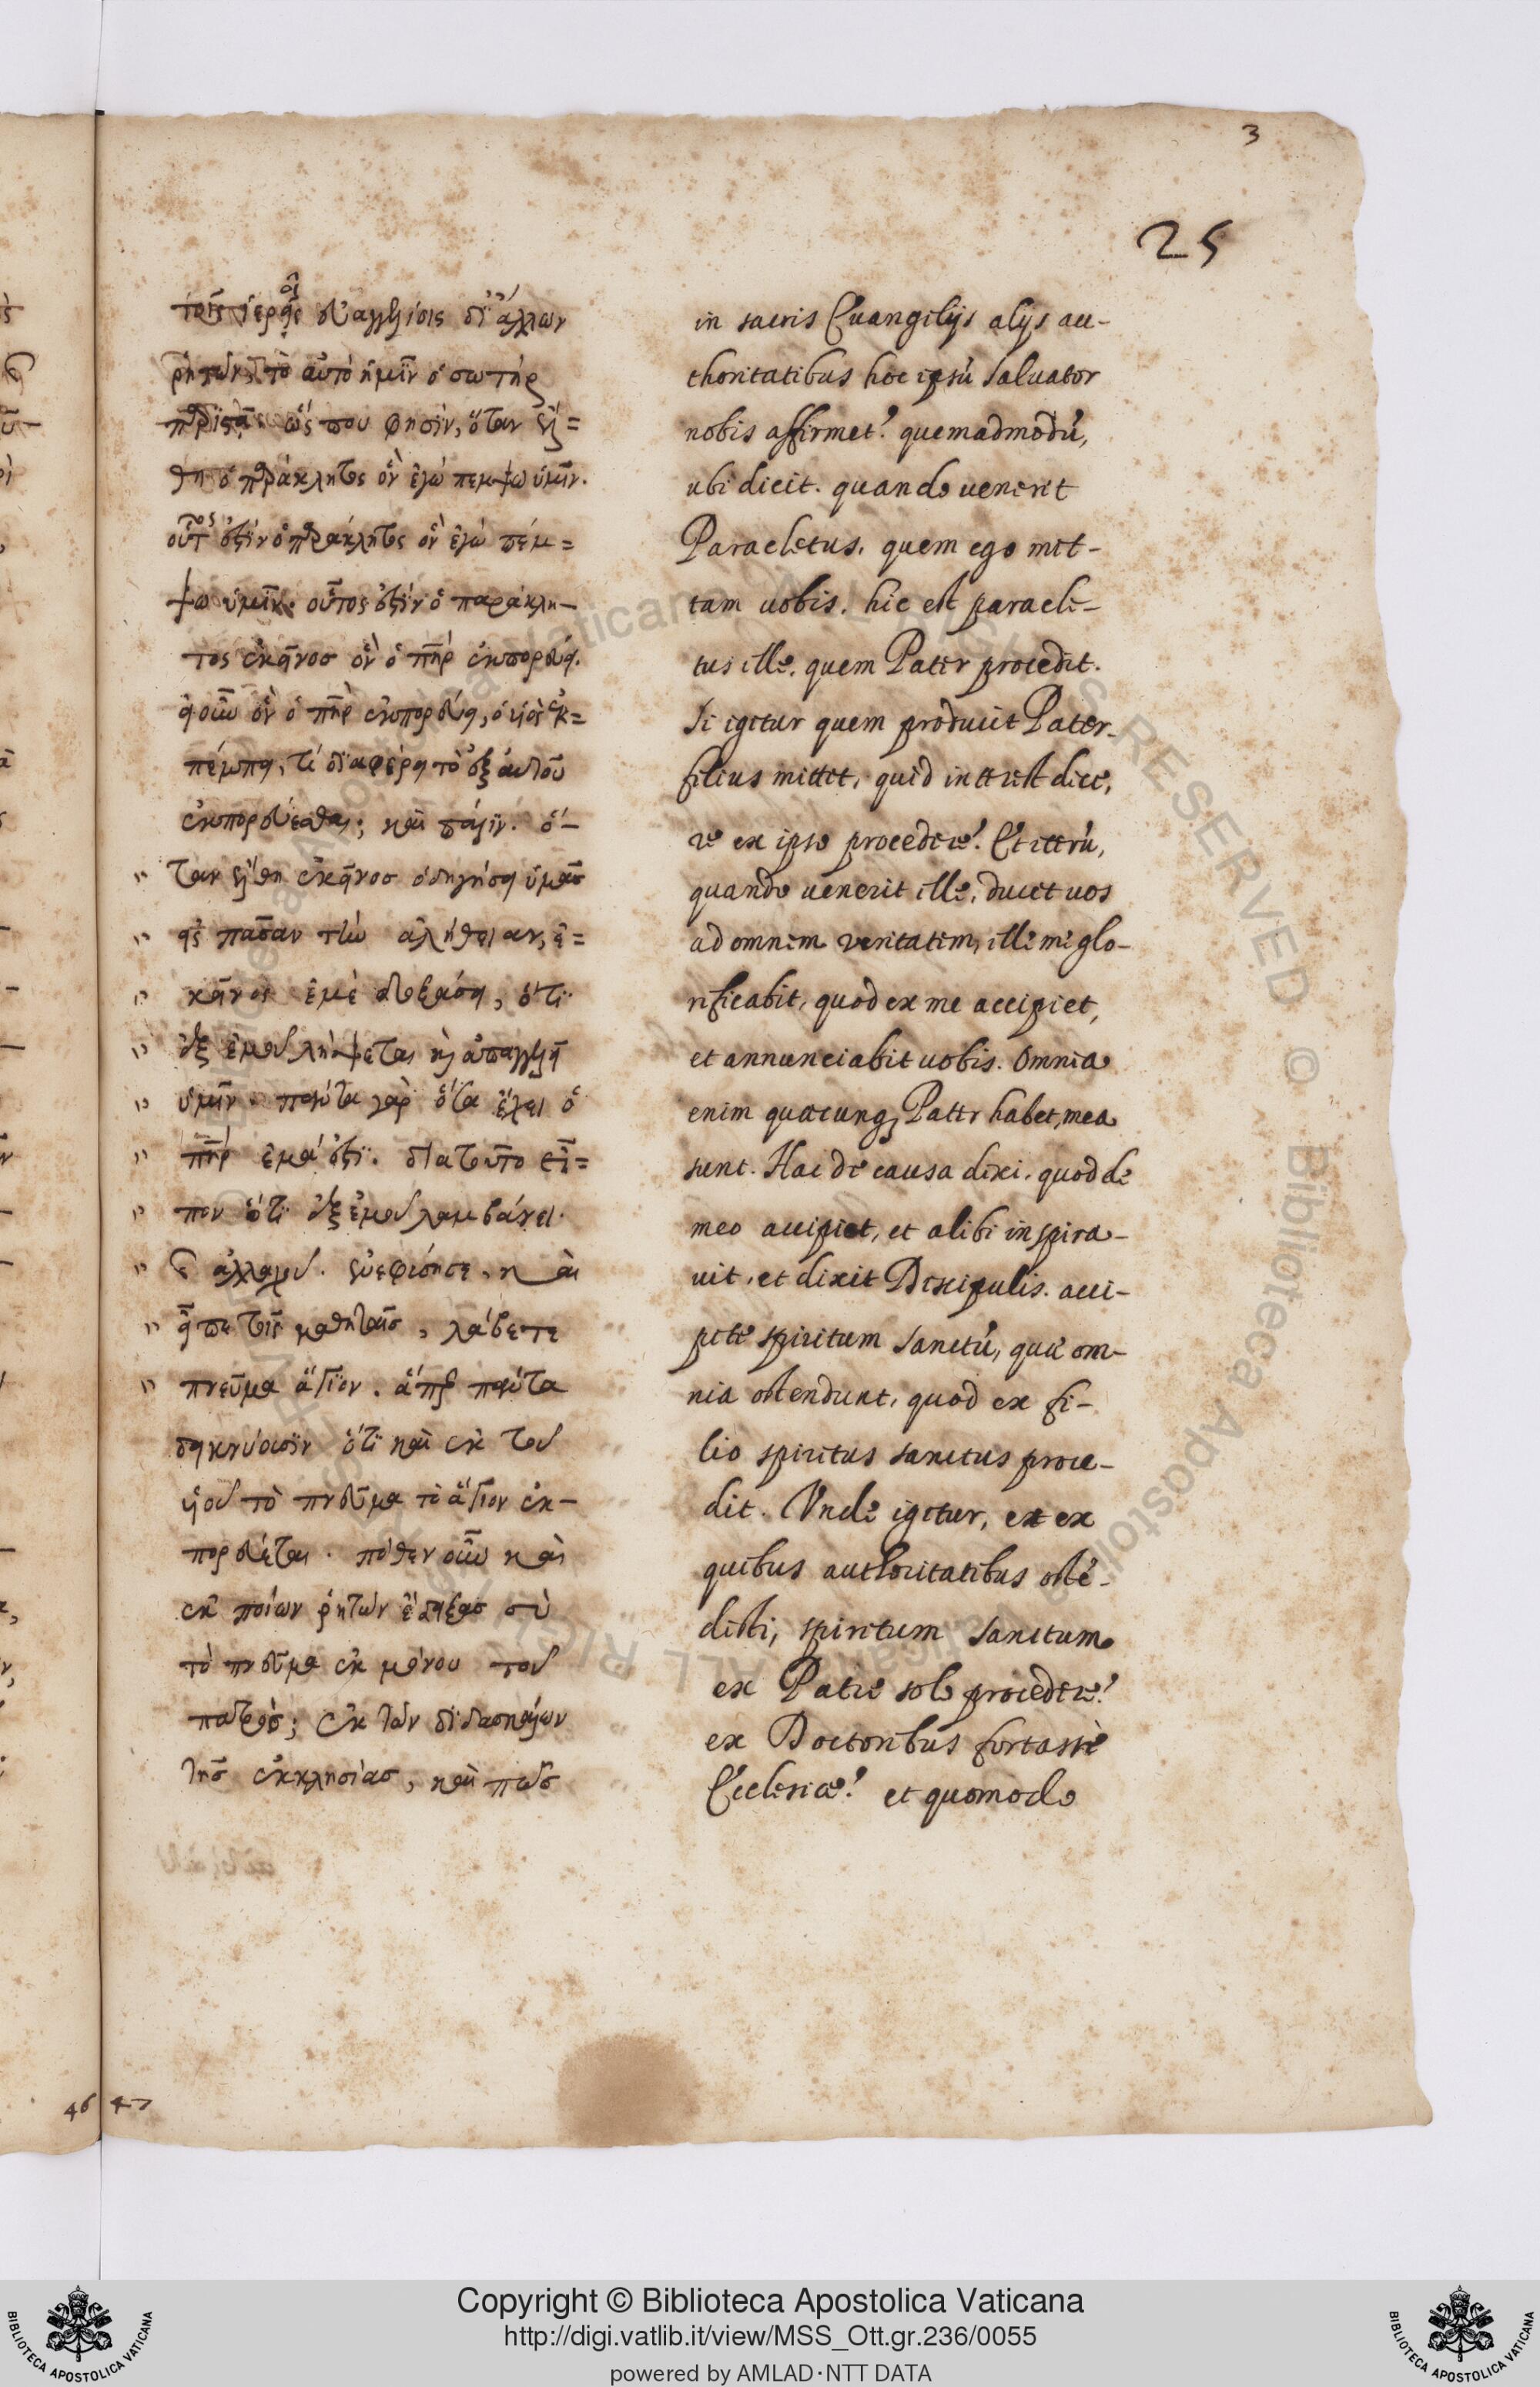 3
25
τοῖς ἱεροῖς εὐαγγελίοις δι' ἄλλων
ῥητῶν, τὸ αὐτὸ ἡμῖν ὁ σωτὴρ
παρίστησι· ὥς που φησὶν, ὅταν ἔλ=
θη ὁ παράκλητος ὃν ἐγὼ πεμψω ὑμῖν.
οὗτος ἐστὶν ὁ παράκλητος ὃν ἐγὼ πέμ=
ψω ὑμῖν· οὗτος ἐστὶν ὁ παράκλη-
τος ἐκεῖνοσ ὃν ὁ πηρ ἐκπορεύει.
εἰ οὖν ὃν ὁ πηρ ἐκπορεύει, ὁ υἱὸς ἐκ=
πέμπει, τί διαφέρει τὸ ἐξ αυτοῦ
ἐκπορεύεσθαι; καὶ πάλιν. ὅ-
" ταν ἔλθη ἐκεῖνοσ ὁδηγήσει ὑμᾶσ
" εἰς πᾶσαν τὴν ἀλήθειαν, ἐ=
" κεῖνος ἐμὲ δοξάσει, ὅτι
" ἐξ ἐμοῦ λήψεται καὶ ἀπαγγελεῖ
" ὑμῖν· πάντα γὰρ ὅσα ἔχει ὁ
" πηρ ἐμά ἐστι. δια τοῦτο εἶ=
" πον ὅτι ἐξ ἐμοῦ λαμβάνει.
" ἀλλαχοῦ. ἐνεφύσησε, καὶ
" εἶπε τοῖς μαθηταῖσ, λάβετε
" πνεῦμα ἅγιον. ἅπερ πάντα
δεικνύουσιν ὅτι καὶ ἐκ τοῦ
υἱοῦ τὸ πνεῦμα τὸ ἅγιον ἐκ-
πορεύεται. πόθεν οὖν καὶ
ἐκ ποίων ῥητῶν ἔδειξασ σὺ
τὸ πνεῦμα ἐκ μόνου τοῦ
πατρὸσ; ἐκ τῶν διδασκάλων
τῆσ ἐκκλησίασ, καὶ πῶσ
in sacris Euangelijs alijs au-
thoritatibus hoc ipsũ saluator
nobis affirmet? quemadmodũ,
ubi dicit. quando uenerit
Paracletus, quem ego mit-
tam uobis. hic est paracle-
tus ille, quem Pater procedit.
Si igitur quem producit Pater
filius mittit, quid interest dice,
re ex ipso procedere? Et iterũ,
quando uenerit ille, ducet uos
ad omnem veritatem, ille me glo-
rificabit, quod ex me accipiet,
et annunciabit uobis. Omnia
enim quæcunq; Pater habet, mea
sunt. Hac de causa dixi, quod de
meo accipiet, et alibi inspira-
uit, et dixit Discipulis. acci-
pite spiritum sanctũ, quæ om-
nia ostendunt, quod ex fi-
lio spiritus sanctus proce-
dit. Vnde igitur, et ex
quibus authoritatibus ostẽ-
disti, spiritum sanctum
ex Patre solo procedere?
ex Doctoribus fortasse
Ecclesiæ? et quomodo
46 47
Copyright © Biblioteca Apostolica Vaticana
http://digi.vatlib.it/view/MSS_Ott.gr.236/0055
powered by AMLAD·NTT DATA
BIBLIOTECA APOSTOLICA VATICANA
BIBLIOTECA APOSTOLICA VATICANA